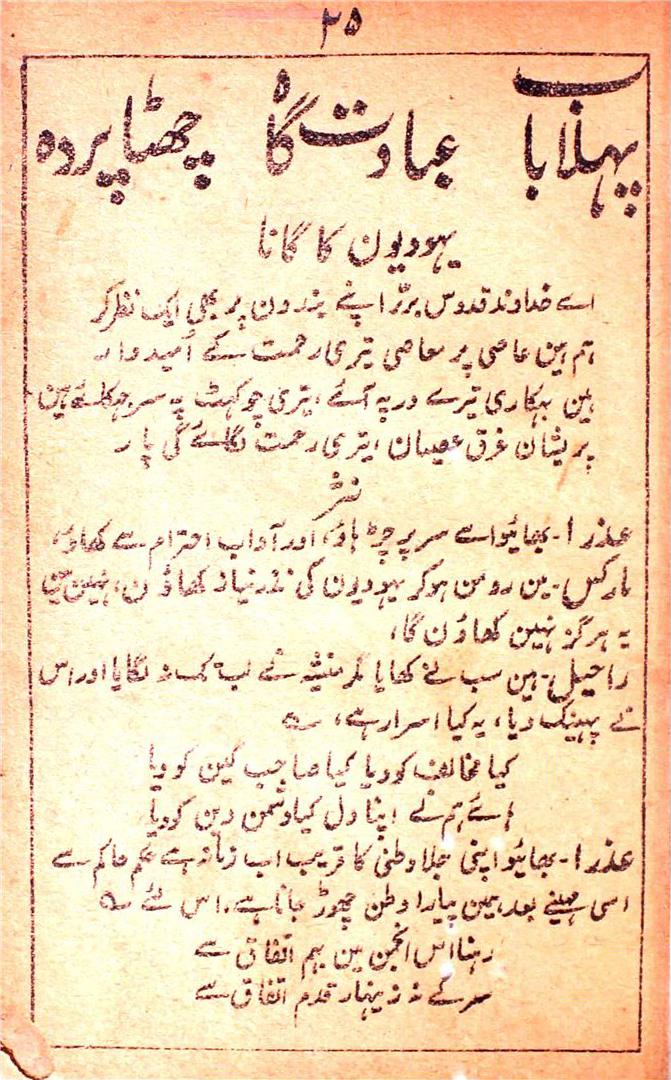 ۲۵
پہلا باب عبادت گاہ چھٹا پردہ
یہودیون کا گانا
اے خداوند قدوس برتر اپنے بندون پر بھی ایک نظر کر
ہم ہین عاصی پر معاصی تیری رحمت کے اُمیدوار
ہین بہکاری تیرے در پہ آئے، تیری چوکہٹ پہ سر جھکائے ہین
پریشان غرق عصیان، تیری رحمت لگائے گی پار
نثر
عذرا۔ بھائیو اسے سر پر چڑہاؤ، اور آداب احترام سے کھاؤ،
مارکس۔ مین رومن ہوکر یہودیون کی نذر نیاز کھاؤن، نہین مین
یہ ہرگز نہین کھاؤن گا،
راحیل۔ ہین سب نے کھایا مگر منشیہ نے لب تک نہ لگایا اور اس
نے پہینک دیا، یہ کیا اسرار ہے، ؎
کیا مخالف کو دیا کیا صاحب کین کو دیا
ہائے ہم نے اپنا دل کیا دشمن دین کو دیا
عذرا۔ بھائیو اپنی جلا وطنی کا قریب اب زمانہ ہے حکم حاکم سے
اسی مہینے بعد ہمین پیارا وطن چھوڑ جانا ہے، اس لئے ؎
رہنا اس انجمن مین بہم اتفاق سے
سرکے نہ زینہار قدم اتفاق سے